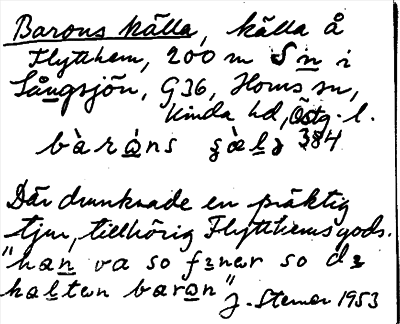 Barons källa, källa å
Flytthem, 200 m S n i
Långsjön, G36, Horns sn,
Kinda hd, Östg. l.
bàrans 384
Där drunknade en präktig
tjur, tillhörig Flytthems gods.
"han va so fɜnar so dɜ
kaltan baron"
J. Sterner 1953